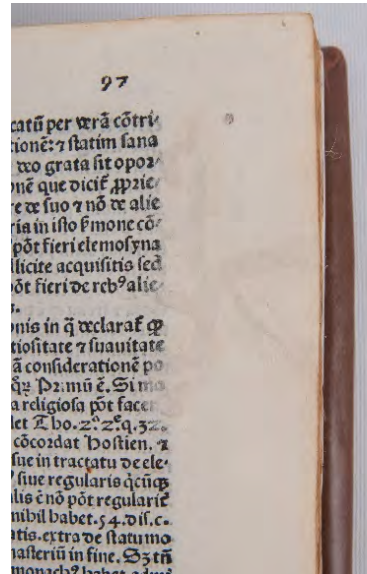 97
catū per verā cōtri⸗
tionē: ⁊ statim sana
deo grata sit opor⸗
nē que dicit̄ ꝓprie
re de suo ⁊ nō de alie
ria in isto ẜmone cō⸗
pōt fieri elemosyna
llicite acquisitis sed
pōt fieri de rebꝰ alie
s.
onis in q̄ declarat̄ ꝙ
tiositate ⁊ suauitate
ā considerationē po
Primū ē. Si mo
a religiosa pōt facer
let Tho. 2.ª 2.ᵉ q. 32.
cōcordat Hostien. ⁊
sue in tractatu de ele⸗
siue regularis q̄cūqꝫ
lis ē nō pōt regularit̄
nihil habet. 54. dis. c.
tis. extra de statu mo
nasteriū in fine. Sꝫ tn̄
monachꝰ habet